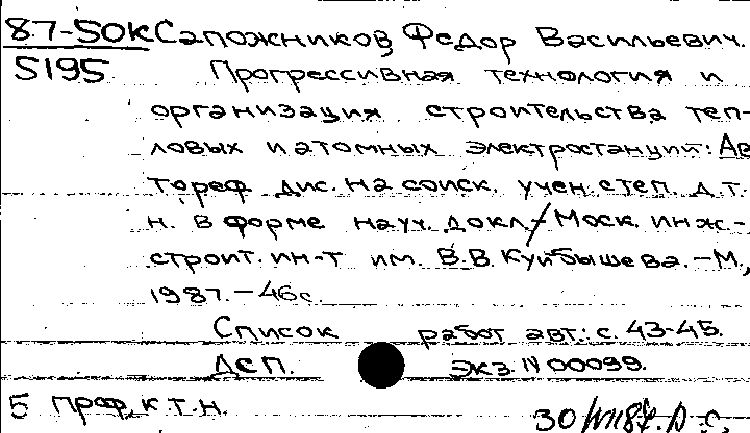 87-50К Сапожников Федор Васильевич.
5195 Прогрессивная технология и
организация строительства теп-
ловых и атомных электростанций: Ав
тореф дис. на соиск. учен. степ. д.т.
н. в форме науч. докл./ Моск. инж.-
строит. ин-т им. В.В. Куйбышева. - М.,
1987. - 46с.
Список работ авт.: с. 43-45.
ДСП. Экз. N 00099.
5 Проф, к.т.н.
30